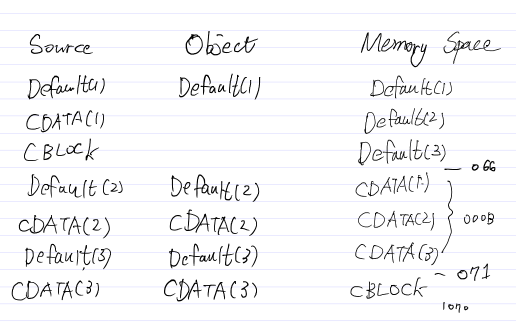 Source Object Memory Space
Default(1) Default(1) Default(1)
CDATA(1) Default(2)
CBLOCK Default(3)
066
Default(2) Default(2) CDATA(1)
CDATA(2) CDATA(2) CDATA(2) 000B
Default(3) Default(3) CDATA(3)
071
CDATA(3) CDATA(3) CBLOCK
1070